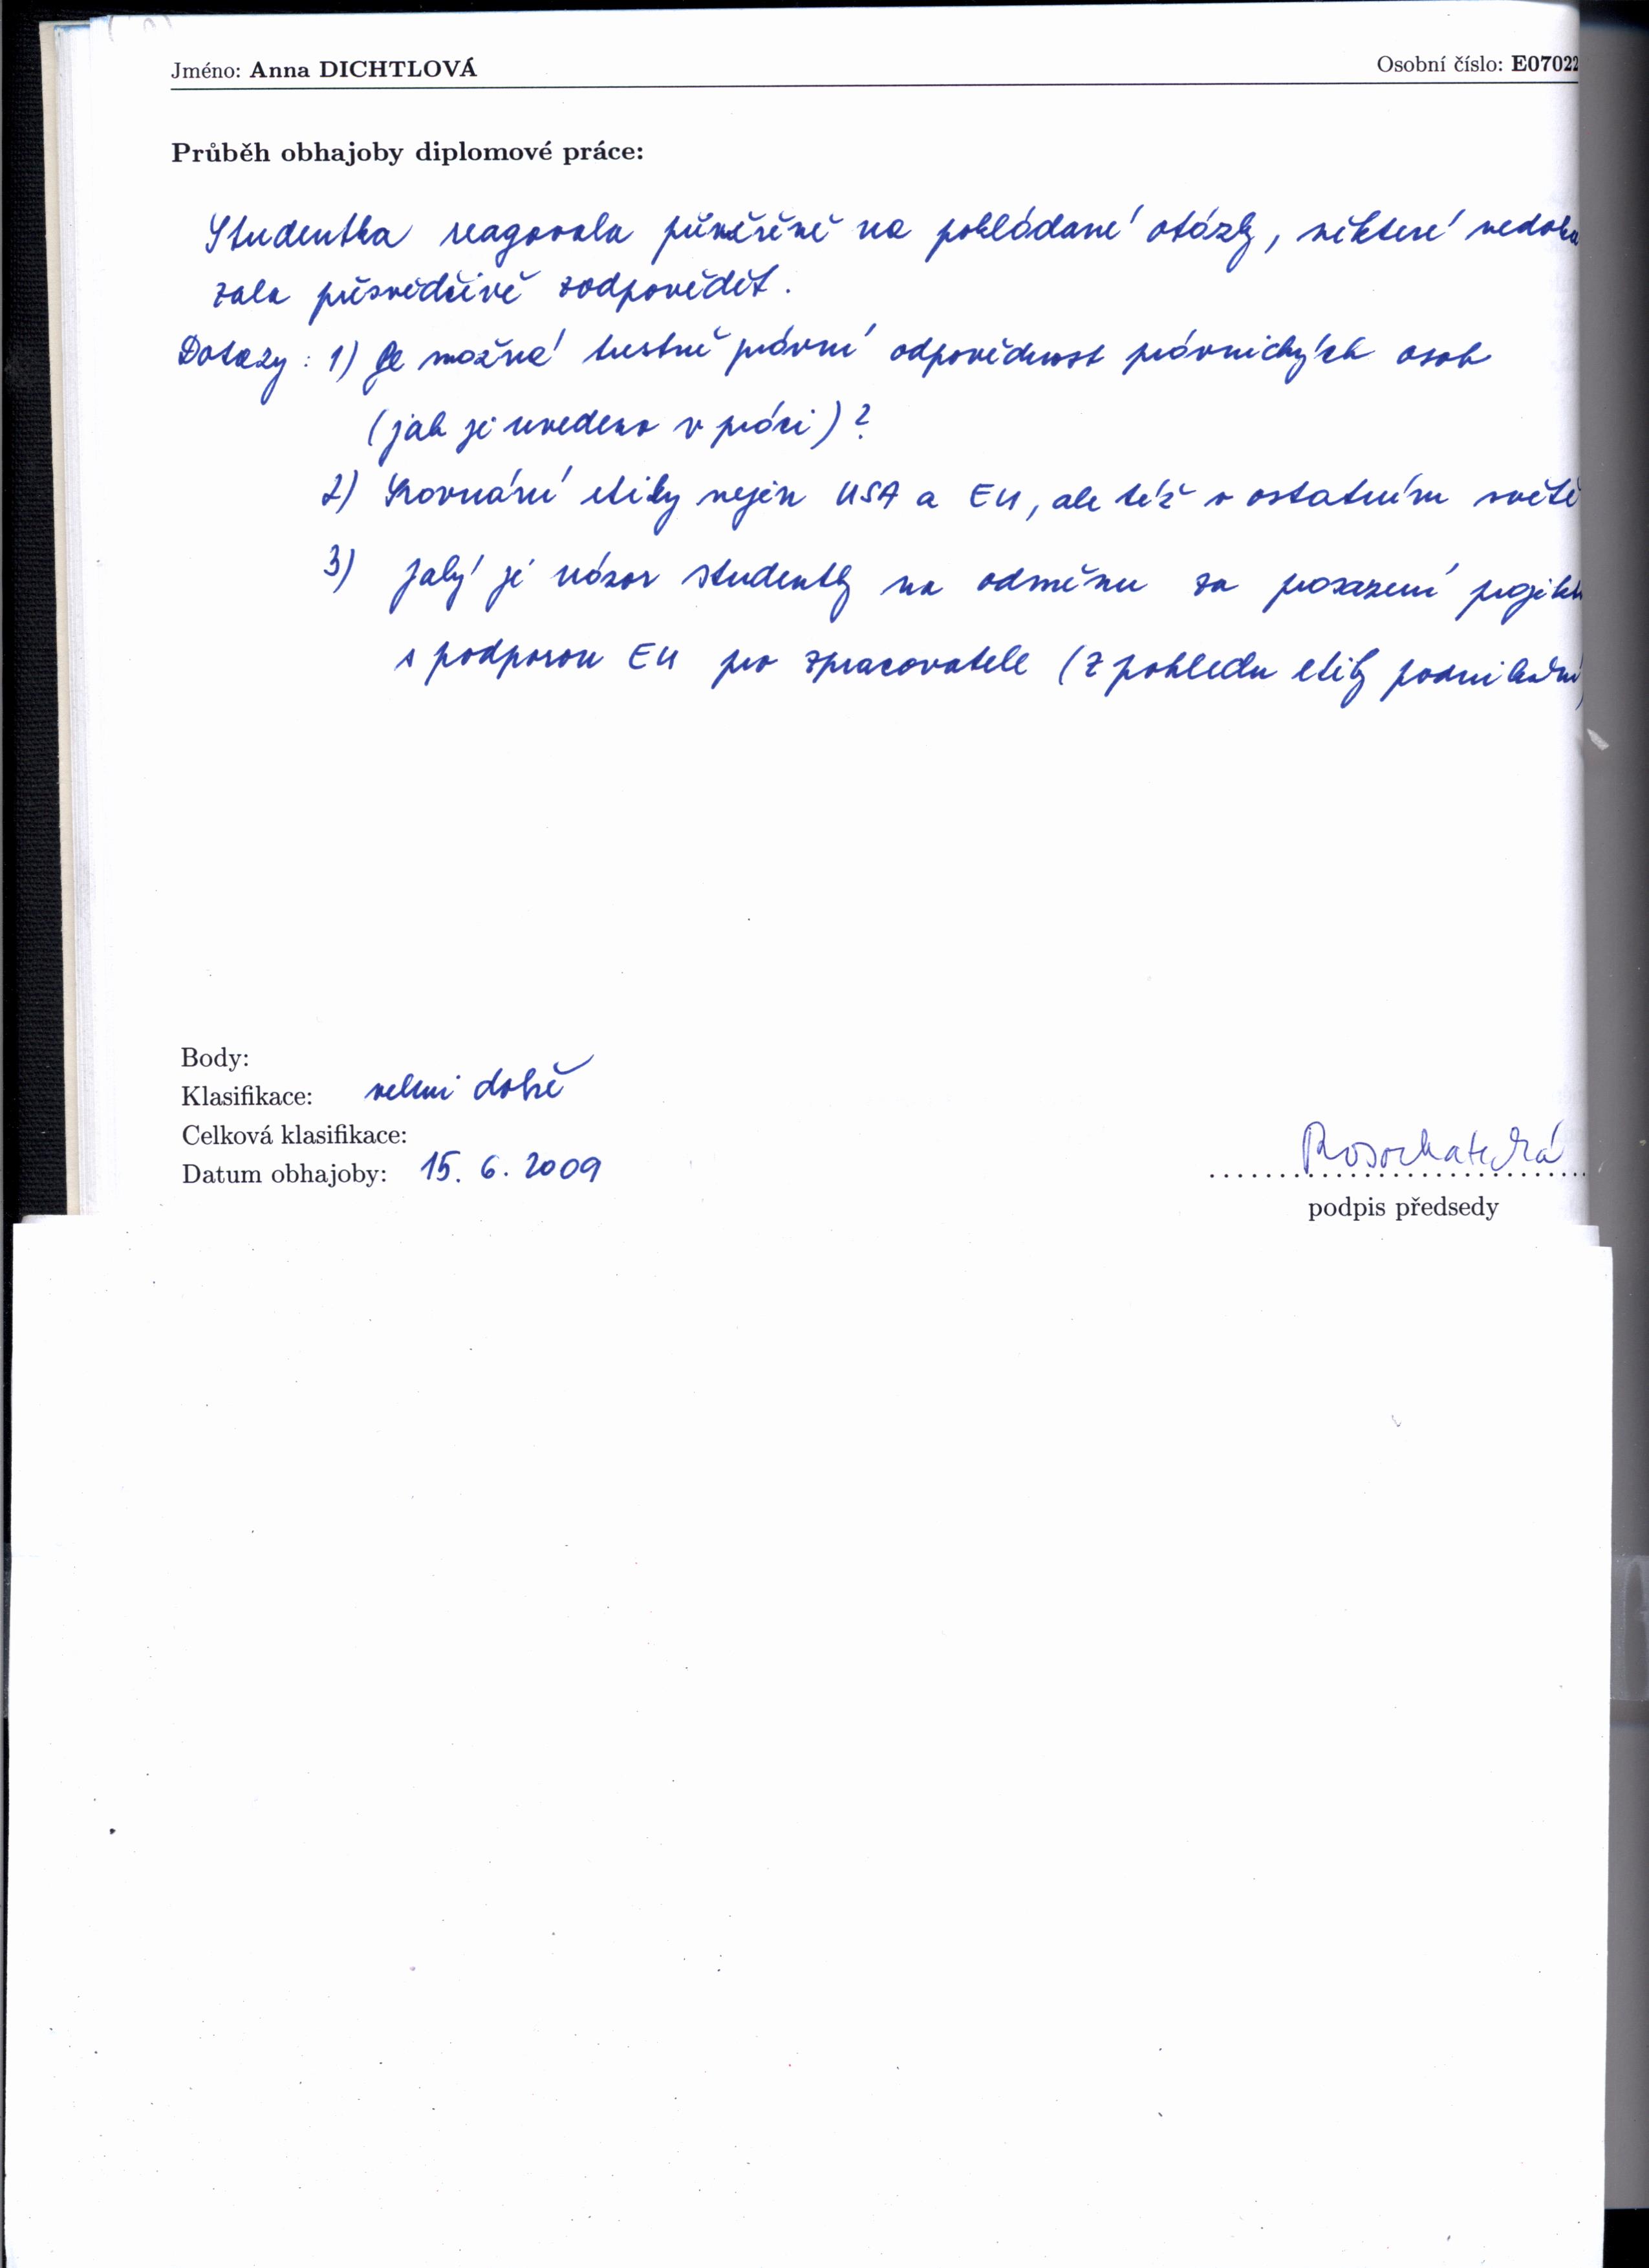 Jméno: Anna DICHTLOVÁ Osobní číslo: E07022
Průběh obhajoby diplomové práce:
Studentka reagovala přiměřeně na pokládané otázky, některé nedoká
zala přesvědčivě zodpovědět.
Dotazy: 1) Je možná trestně právní odpovědnost právnických osob
(jak je uvedeno v práci)?
2) Srovnání etiky nejen USA a EU, ale též v ostatním světě
3) Jaký je názor studentky na odměnu za prosazení projekt
s podporou EU pro zpracovatele (z pohledu etiky podnikání)
Body:
Klasifikace: velmi dobře
Celková klasifikace:
Datum obhajoby: 15. 6. 2009
podpis předsedy